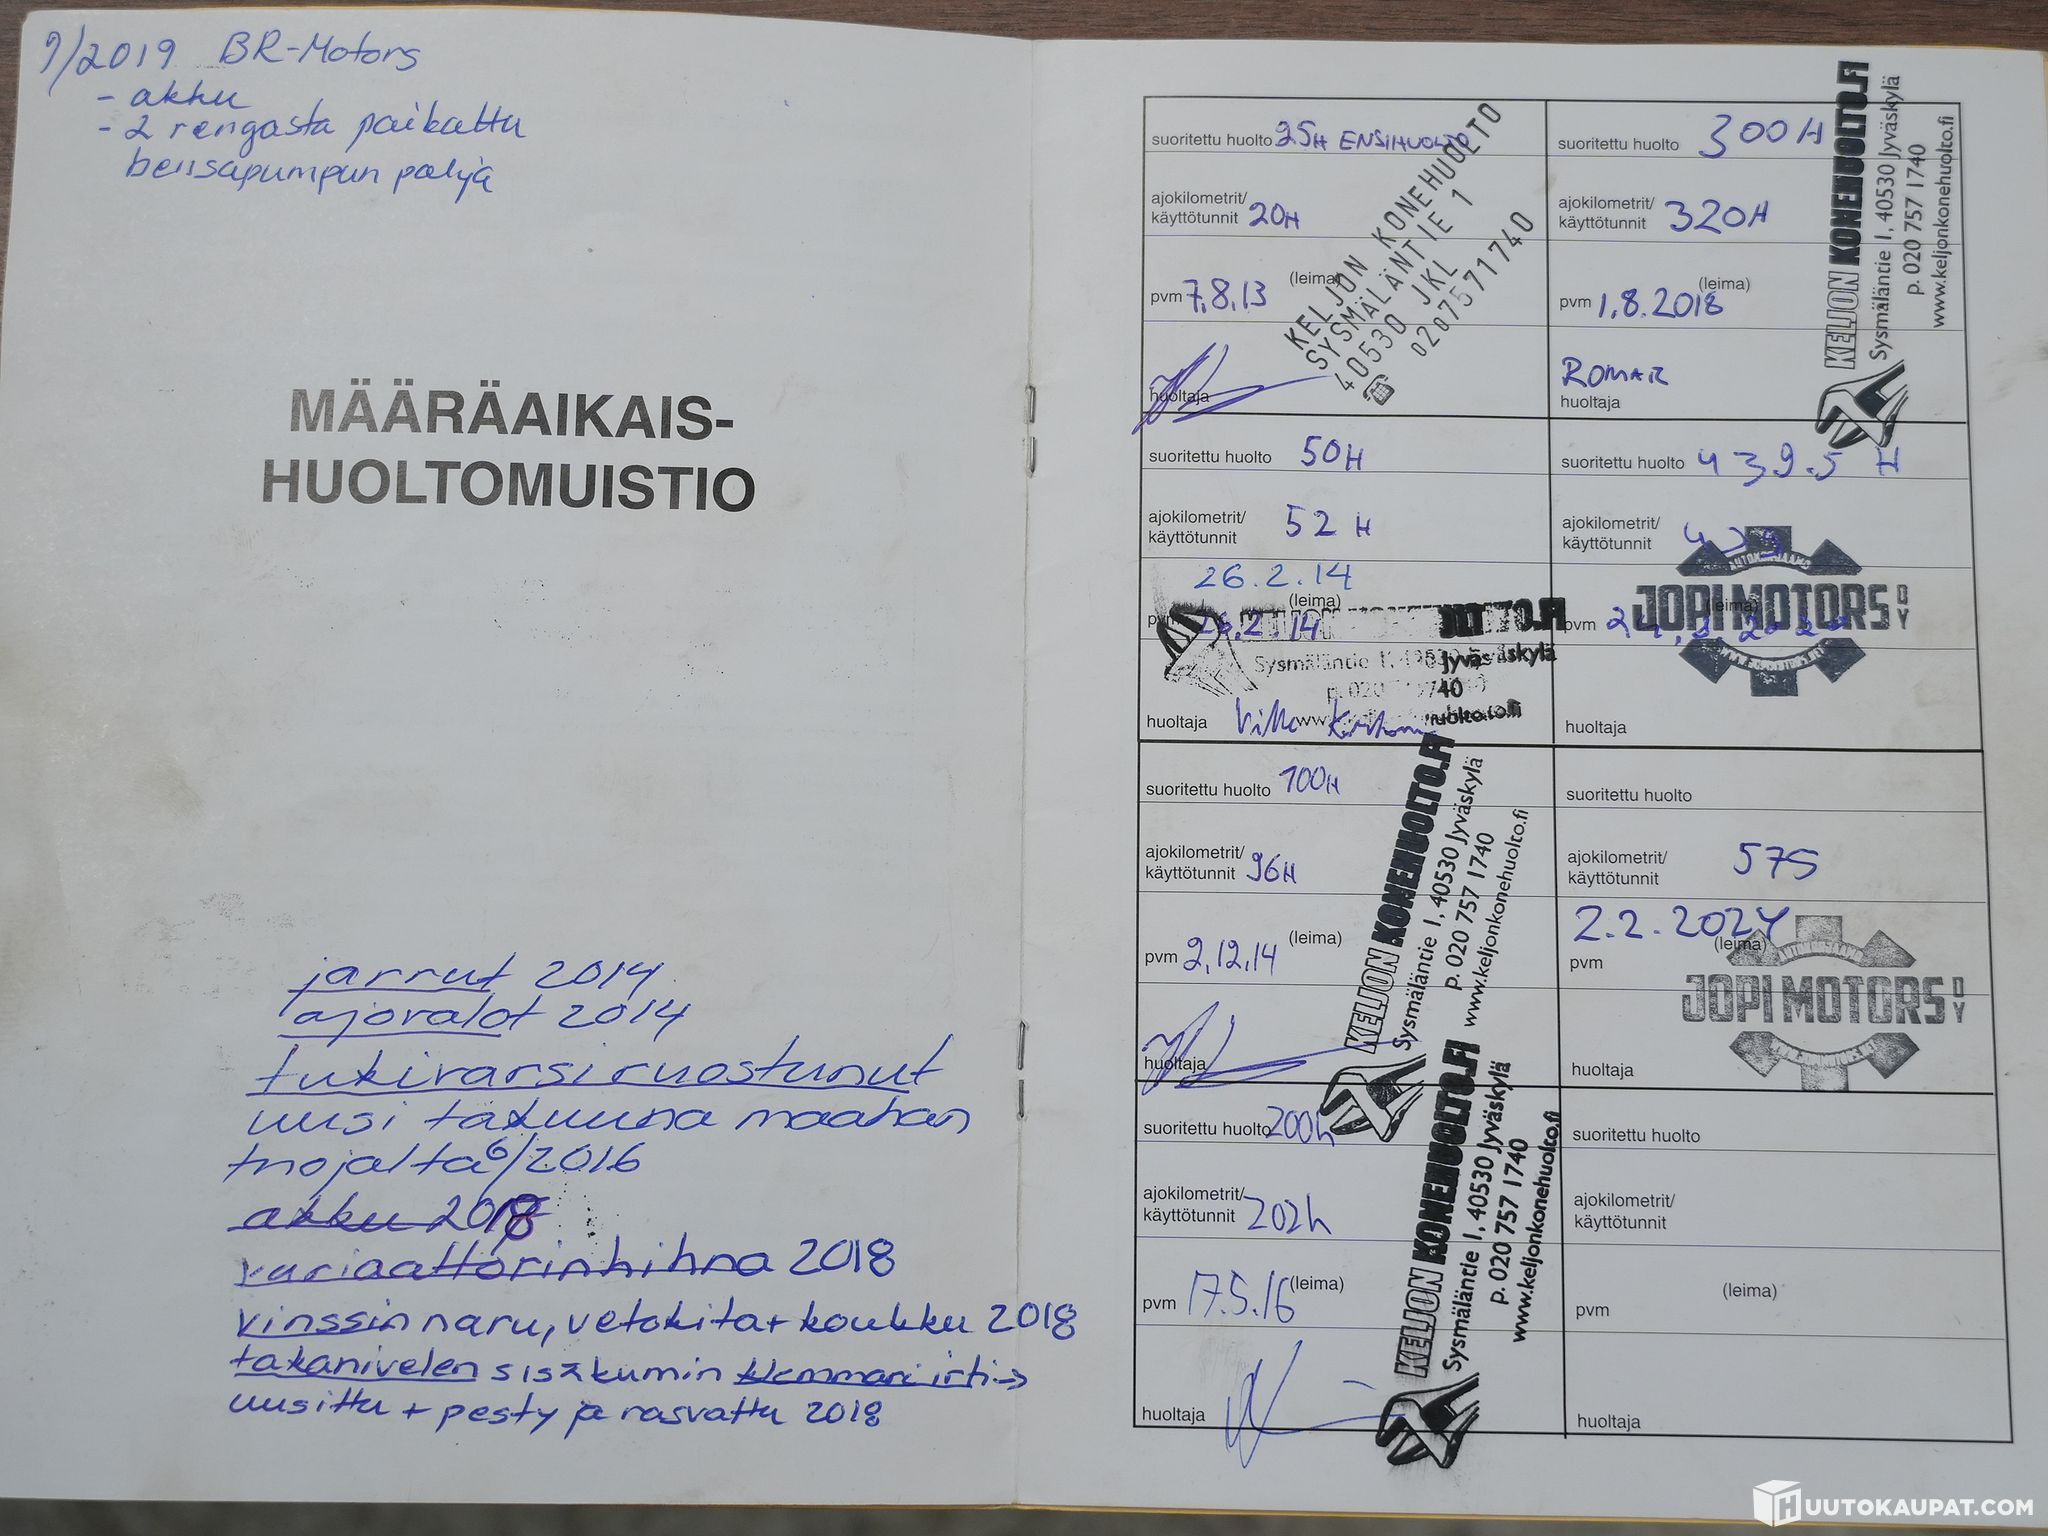 9/2019 BR-Motors
- akku
- 2 rengasta paikattu
bensapumpun pohja
MÄÄRÄAIKAIS-
HUOLTOMUISTIO
jarrut 2014
ajovalot 2014
tukivarsi ruostunut
uusi takuuna maahan
tuojalta 6/2016
akku 2018
variaattorinhihna 2018
vinssin naru, vetokita + koukku 2018
takanivelen sisäkumin klemmari irti →
uusittu + pesty ja rasvattu 2018
suoritettu huolto 25H ENSIHUOLTO
ajokilometrit/
käyttötunnit 20H
(leima)
pvm 7.8.13
huoltaja
KELJON KONEHUOLTO
SYSMÄLÄNTIE 1
40530 JKL
0207571740
suoritettu huolto 50H
ajokilometrit/
käyttötunnit 52 H
26.2.14
(leima)
pvm 26.2.14
Sysmäläntie 1, 40530 Jyväskylä
huoltaja Ville
suoritettu huolto 100H
ajokilometrit/
käyttötunnit 96H
(leima)
pvm 2.12.14
huoltaja
KELJON KONEHUOLTO.FI
Sysmäläntie 1, 40530 Jyväskylä
p. 020 757 1740
www.keljonkonehuolto.fi
suoritettu huolto 200h
ajokilometrit/
käyttötunnit 202h
(leima)
pvm 17.5.16
huoltaja
KELJON KONEHUOLTO.FI
Sysmäläntie 1, 40530 Jyväskylä
p. 020 757 1740
www.keljonkonehuolto.fi
suoritettu huolto 300H
ajokilometrit/
käyttötunnit 320H
(leima)
pvm 1.8.2018
ROMAR
huoltaja
KELJON KONEHUOLTO.FI
Sysmäläntie 1, 40530 Jyväskylä
p. 020 757 1740
www.keljonkonehuolto.fi
suoritettu huolto 439.5 H
ajokilometrit/
käyttötunnit 439
JOPI MOTORS OY
(leima)
pvm
huoltaja
suoritettu huolto
ajokilometrit/
käyttötunnit 575
2.2.2024
(leima)
pvm
JOPI MOTORS OY
huoltaja
suoritettu huolto
ajokilometrit/
käyttötunnit
(leima)
pvm
huoltaja
HUUTOKAUPAT.COM